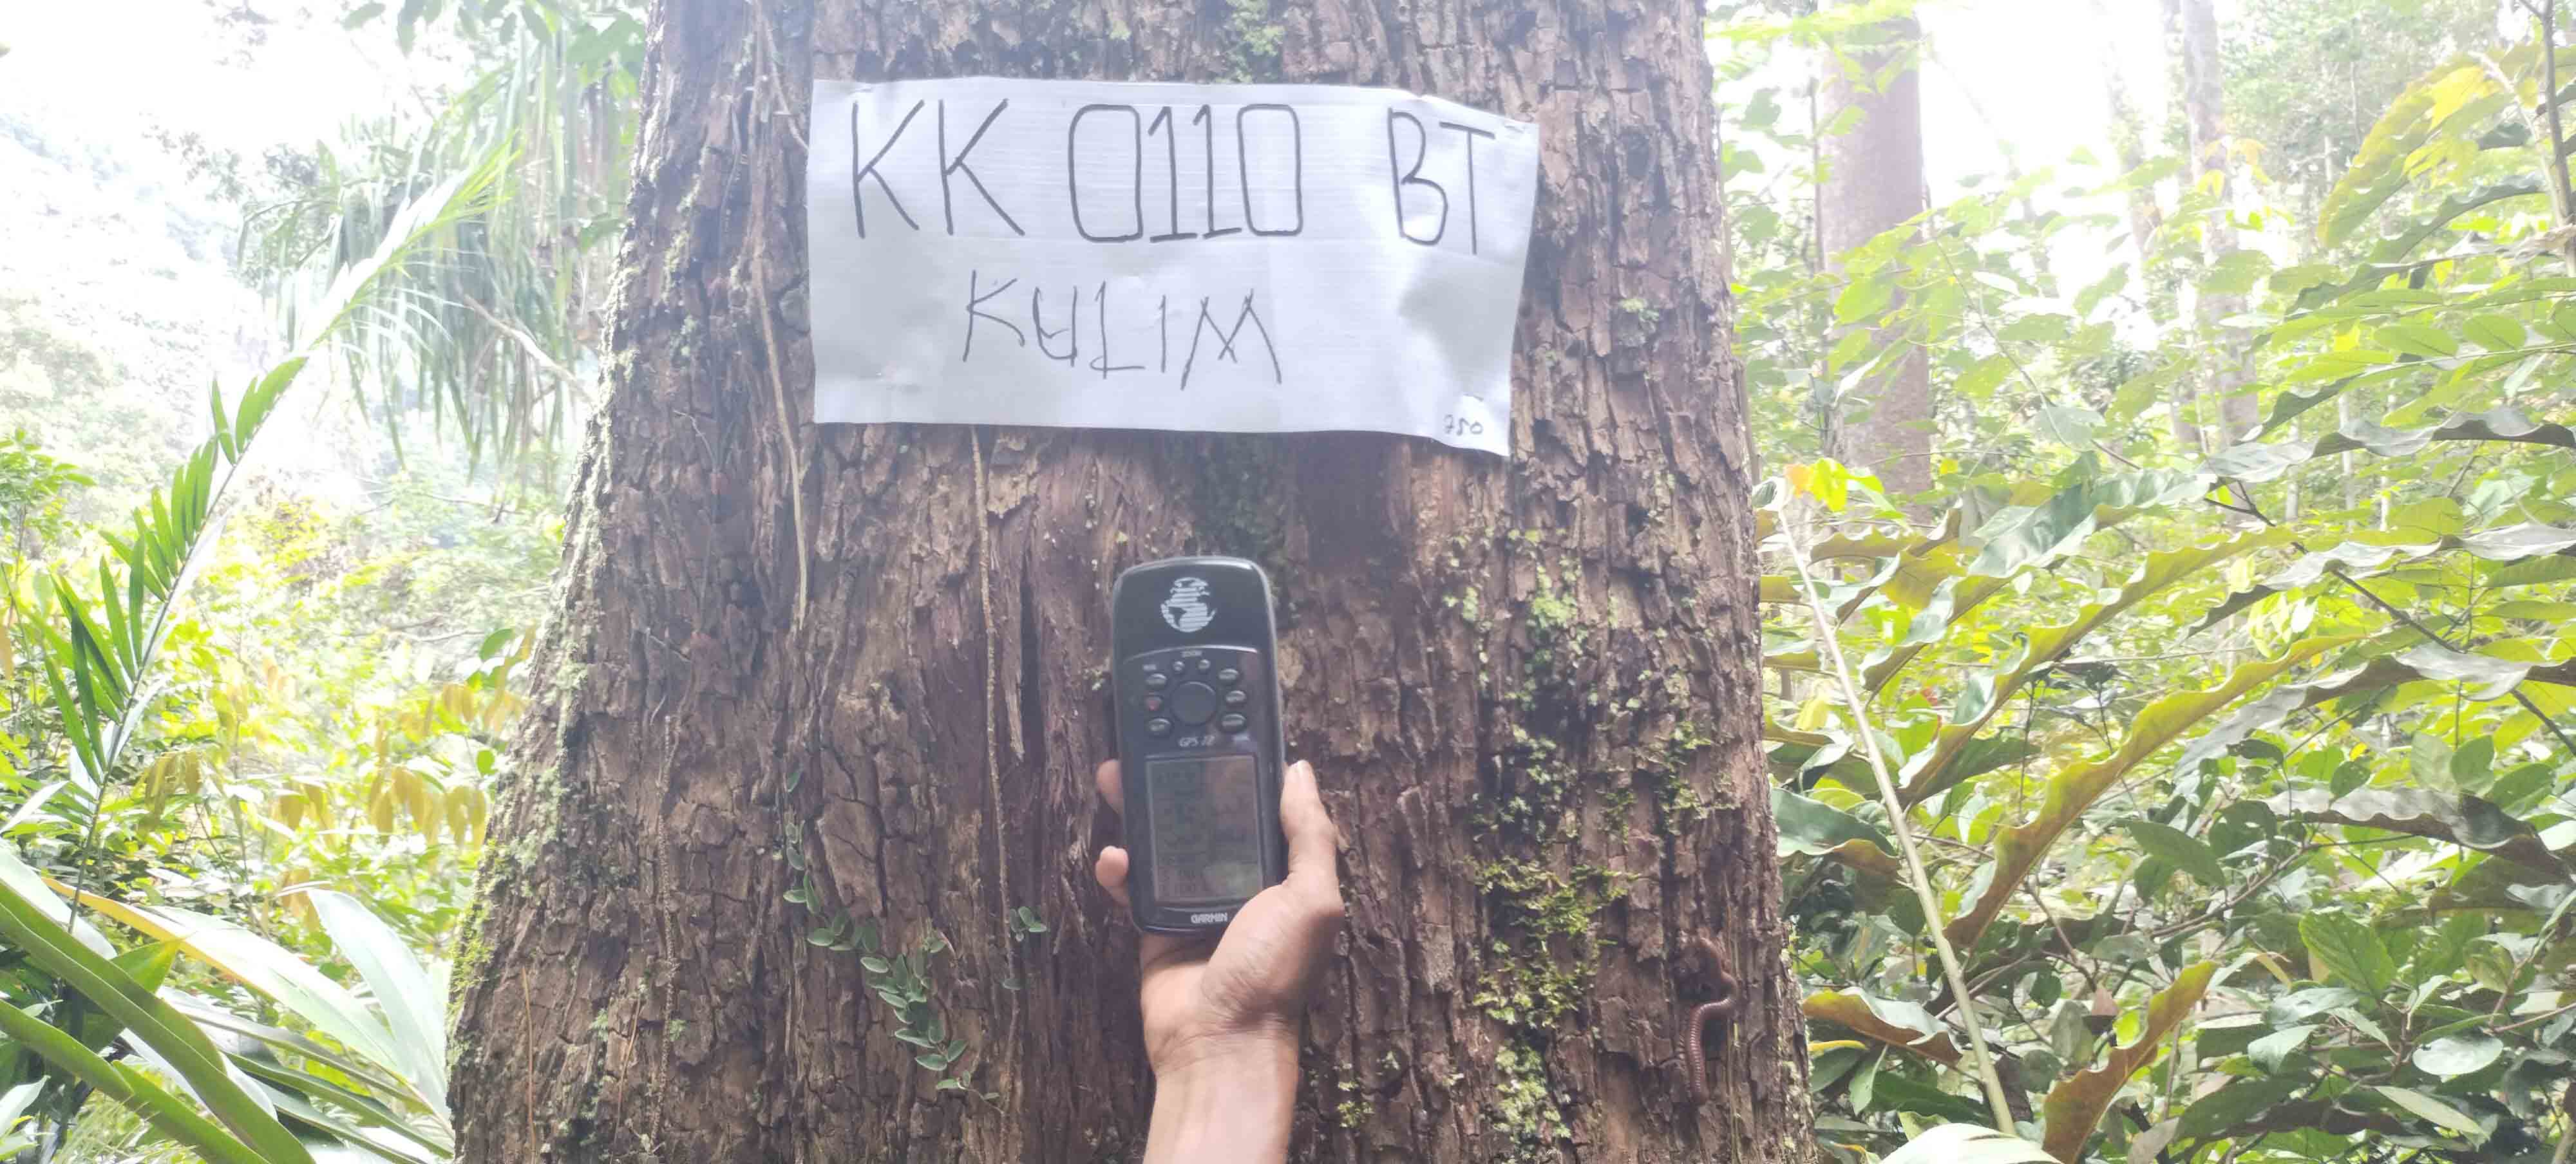 KK 0110 BT
KULIM
750
ZOOM
GPS 72
GARMIN